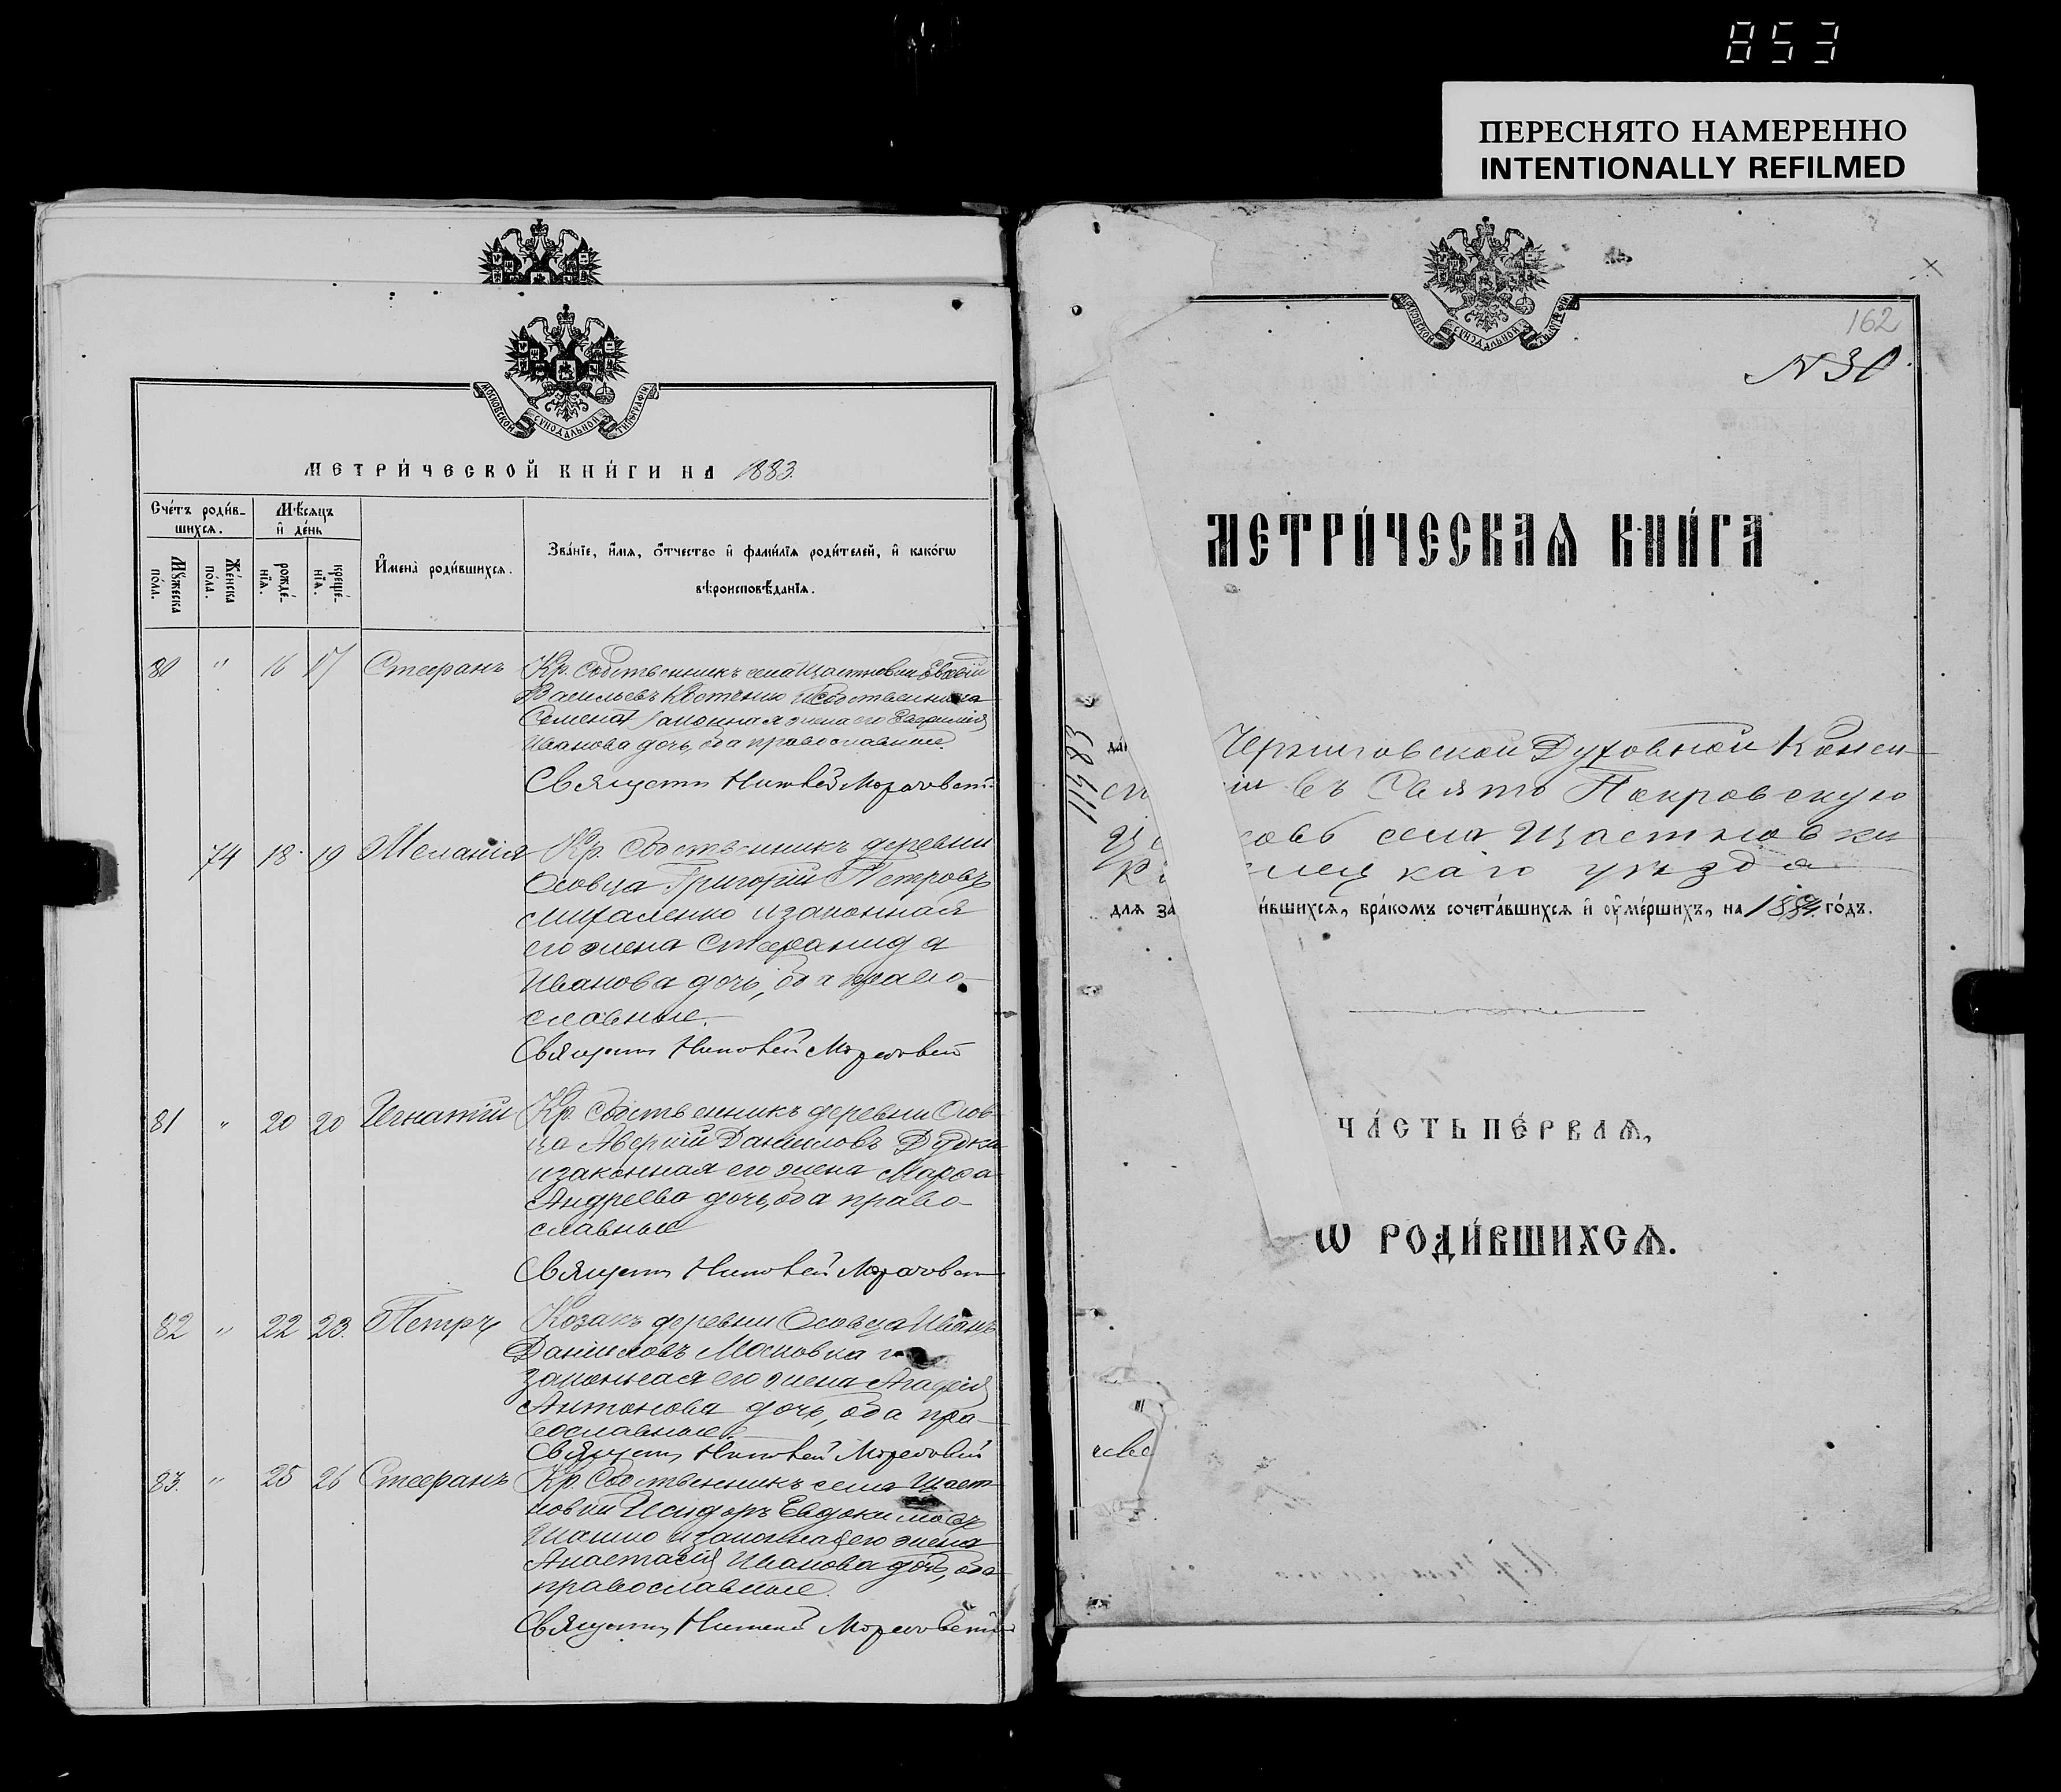 853
ПЕРЕСНЯТО НАМЕРЕННО
INTENTIONALLY REFILMED
МОСКОВСКОЙ СѴНОДАЛЬНОЙ ТИПОГРАФІИ
МЕТРИ́ЧЕСКОЙ КНИ́ГИ НА 1883.
Сче́тъ роди́в-
шихся.
Мѣ́сяцъ
и҆ де́нь
Мꙋ́жеска
по́ла.
Же́нска
по́ла.
рожде́-
нїѧ.
креще́-
нїѧ.
И҆мена̀ роди́вшихся.
Зва́нїе, и҆́мѧ, ѻ҆́тчество и҆ фами́лїѧ роди́телей, и҆ како́гѡ
вѣроисповѣ́данїѧ.
80 " 16 17 Стефанъ Кр. собственникъ села Щастновки
Васильевъ Костенко
законная жена его
Иванова дочь, оба православные.
Священ
74 18 19 Меланія Кр. Собственникъ деревни
Осовца Григорій Петровъ
Михаленко и законная
его жена Стефанида
Иванова дочь, оба право-
славные.
Священ
81 " 20 20 Игнатій Кр. Собственникъ деревни Осов-
ца Аверкій Даниловъ Дудка
и законная его жена Марѳа
Андреева дочь, оба право-
славные
Священ
82 " 22 23. Петръ Козакъ деревни Осовца Иванъ
Даниловъ Московка и
законная его жена Агафія
Антонова дочь, оба пра-
вославные.
Священ
83. " 25 26 Стефанъ Кр. Собственникъ села Щаст
новки Исидоръ Евдокимовъ
и законная его жена
Анастасія Иванова дочь, оба
православные.
Священ
МОСКОВСКОЙ СѴНОДАЛЬНОЙ ТИПОГРАФІИ
162
N 30.
МЕТРИ́ЧЕСКАѦ КНИ́ГА
1883
да́
Черниговской Духовной Конси-
ст іи въ Свято Покровскую
Це ковь села Щастновки
К елецкаго уѣзда
для за и́вшихсѧ, бра́комъ сочета́вшихсѧ и҆ ᲂу҆ме́ршихъ, на 1884. го́дъ.
ЧА́СТЬ ПЕ́РВАѦ,
Ѡ РОДИ́ВШИХСѦ.